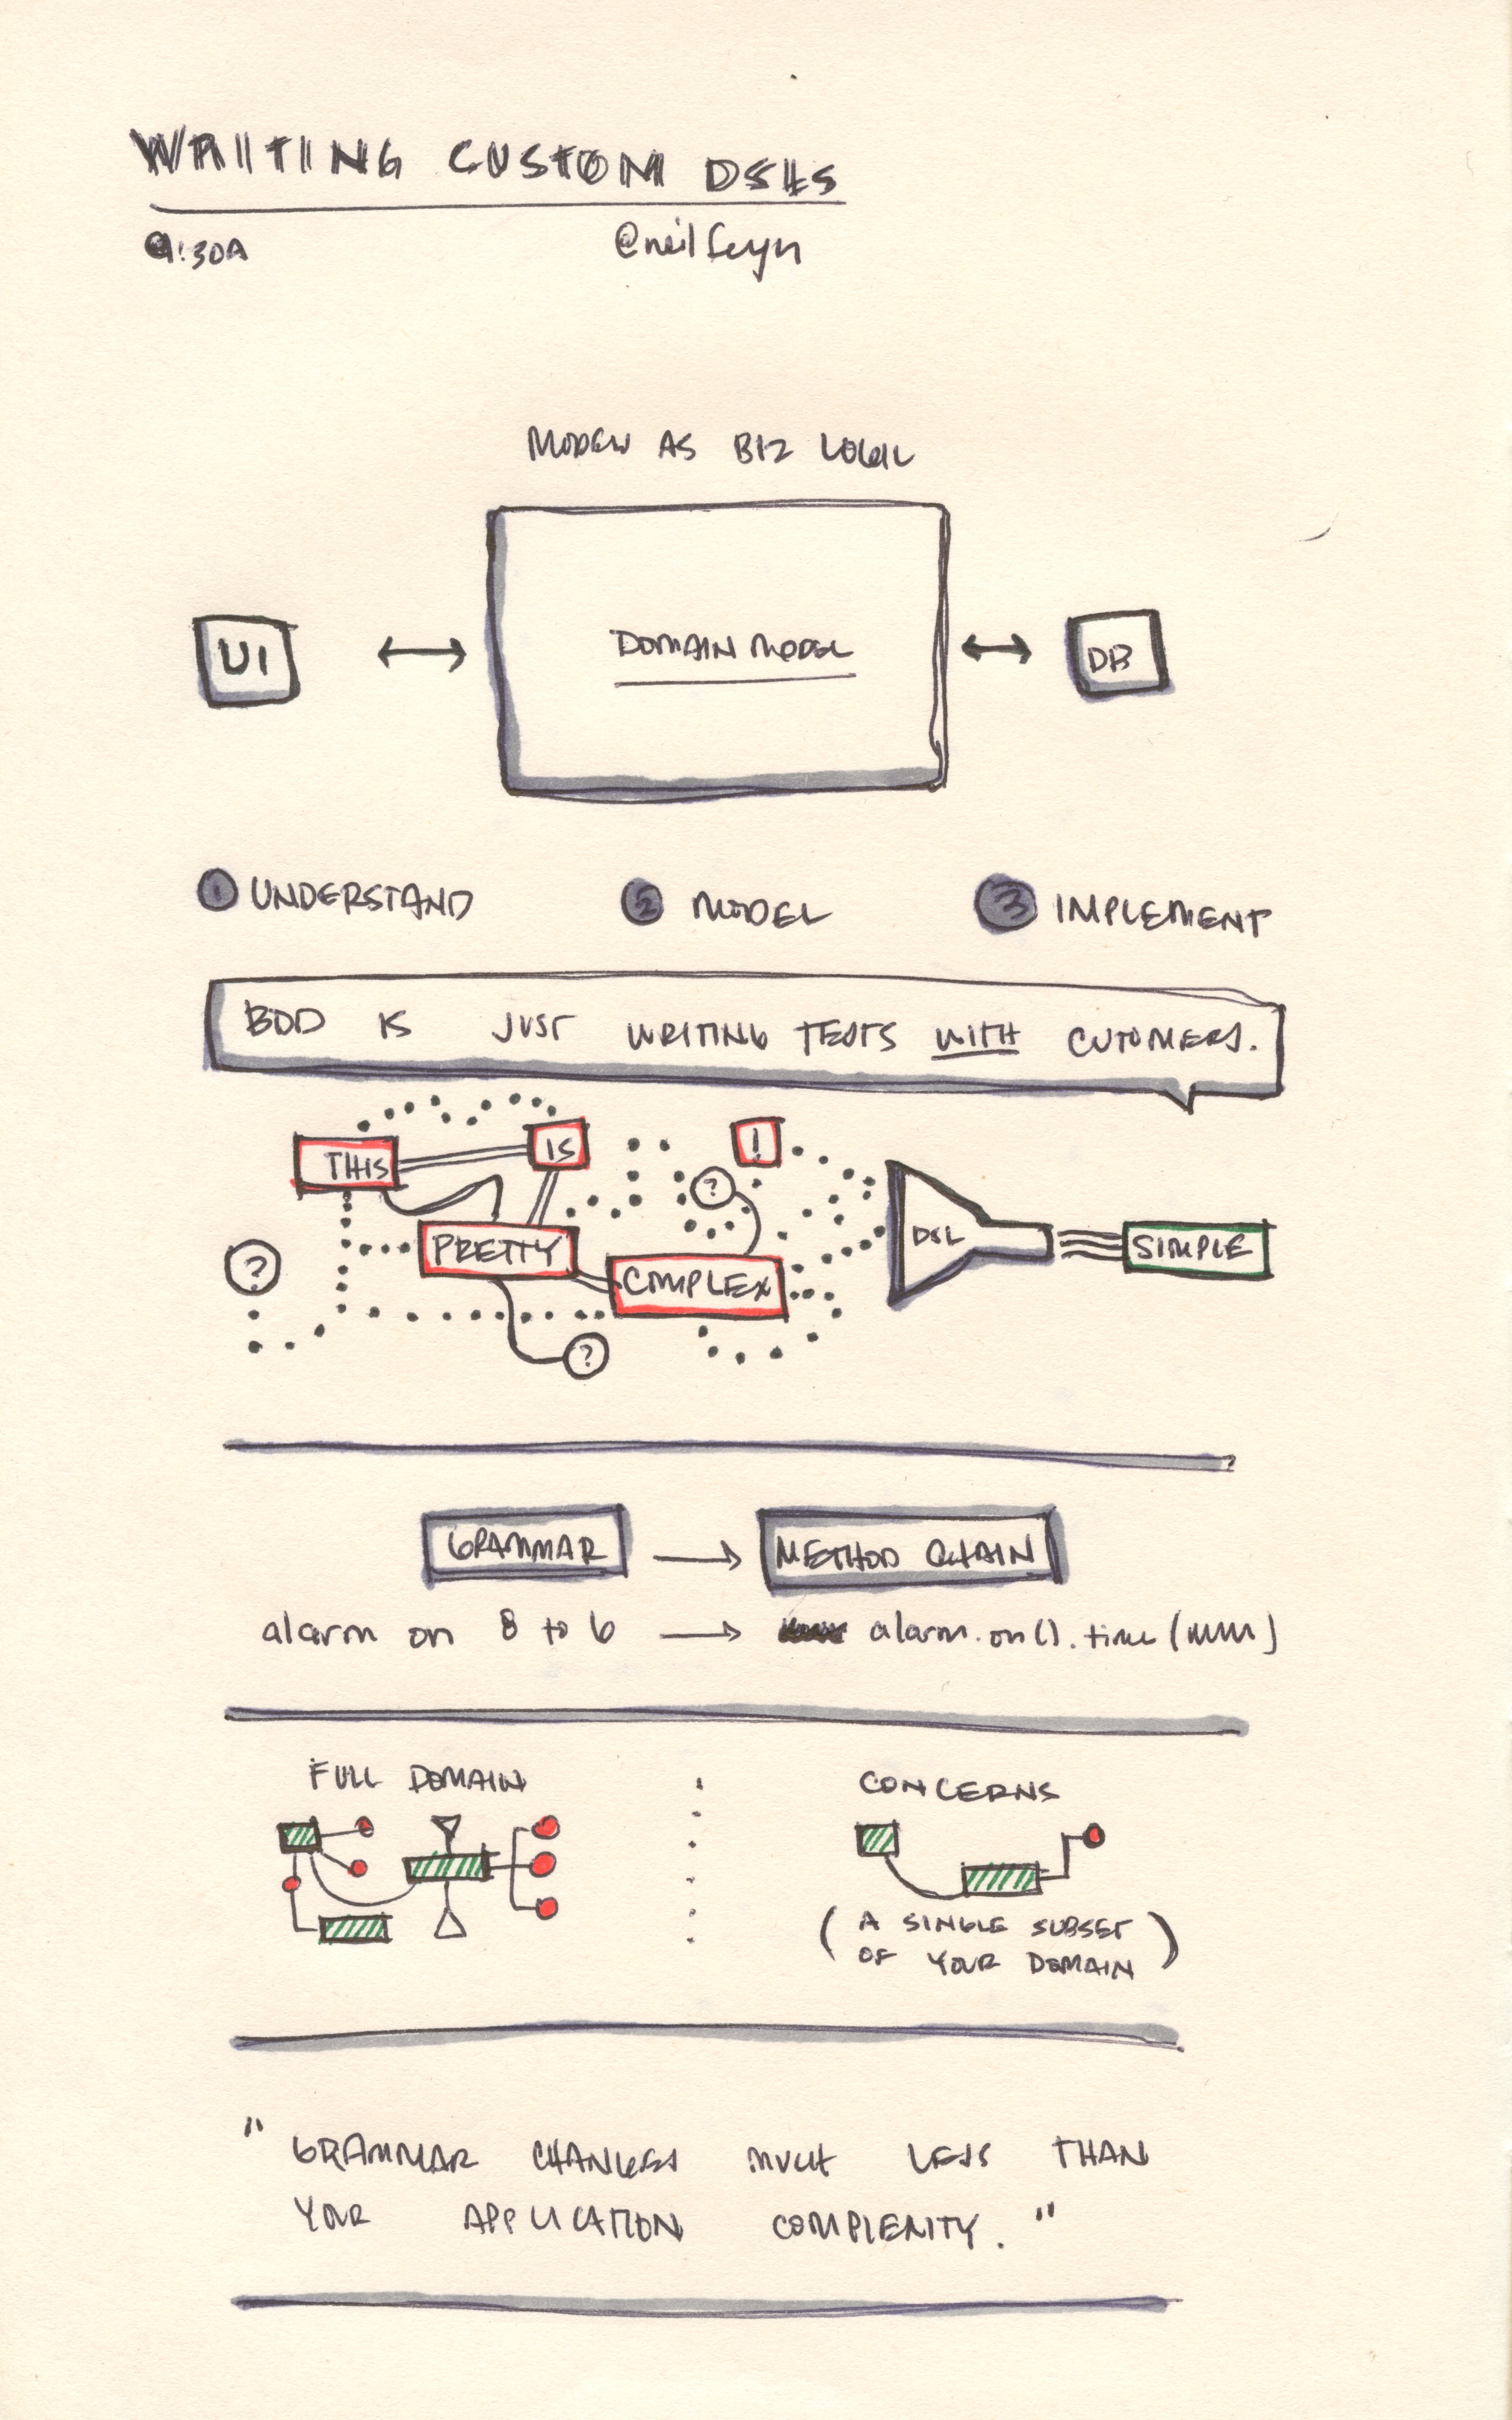 WRITING CUSTOM DSLS
9:30A @neilfeyn
MODEL AS BIZ LOGIC
UI
DOMAIN MODEL
DB
1 UNDERSTAND 2 MODEL 3 IMPLEMENT
BDD IS JUST WRITING TESTS WITH CUTOMERS.
THIS IS !
?
PRETTY DSL SIMPLE
? COMPLEX
?
GRAMMAR METHOD CHAIN
alarm on 8 to 6 alarm.on().time(
FULL DOMAIN CONCERNS
( A SINGLE SUBSET
OF YOUR DOMAIN )
" GRAMMAR CHANGES MUCH LESS THAN
YOUR APPLICATION COMPLEXITY. "